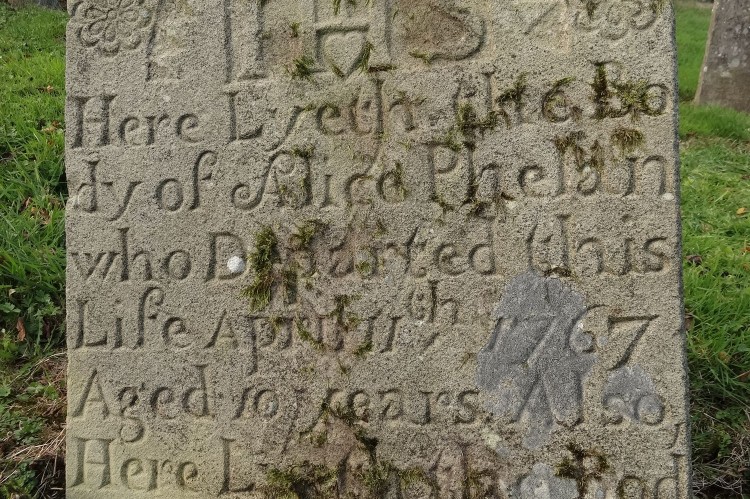 IHS
Here Lyeth the Bo
dy of Alice Phelan
who Departed this
Life April 11th 1767
Aged 70 years. Also,
Here Ly the Bod